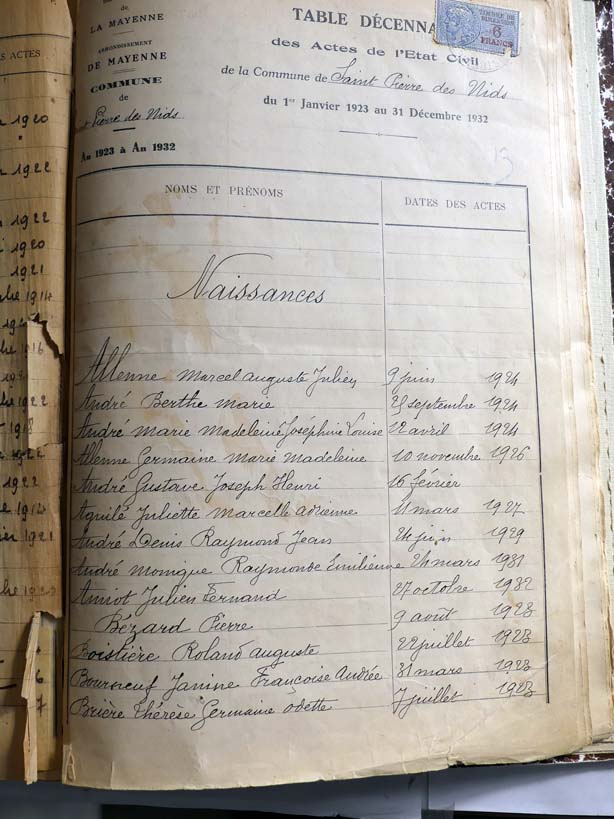 de
LA MAYENNE
ARRONDISSEMENT
DE MAYENNE
COMMUNE
de
Pierre des Nids
An 1923 à An 1932
TABLE DÉCENNA
des Actes de l'Etat Civil
de la Commune de Saint Pierre des Nids
du 1er Janvier 1923 au 31 Décembre 1932
6
FRANCS
13
NOMS ET PRÉNOMS DATES DES ACTES
Naissances
Allenne Marcel Auguste Julien 9 juin 1924
André Berthe Marie septembre 1924
André Marie Madeleine Joséphine Louise 12 avril 1924
Allenne Germaine Marie Madeleine 10 novembre 1926
André Gustave Joseph Henri 16 février
Aguilé Juliette Marcelle Adrienne 11 mars 1927
André Denis Raymond Jean 24 juin 1929
André Monique Raymonde Emilienne 24 mars 1931
Amiot Julien Fernand 27 octobre 1932
Bézard Pierre 9 août 1923
Boistière Roland Auguste 22 juillet 1923
Bourneuf Janine Françoise Andrée 31 mars 1923
Brière Thérèse Germaine Odette 7 juillet 1923
ACTES
1920
1922
1922
1920
1921
1914
1916
1922
1922
1922
1921
7